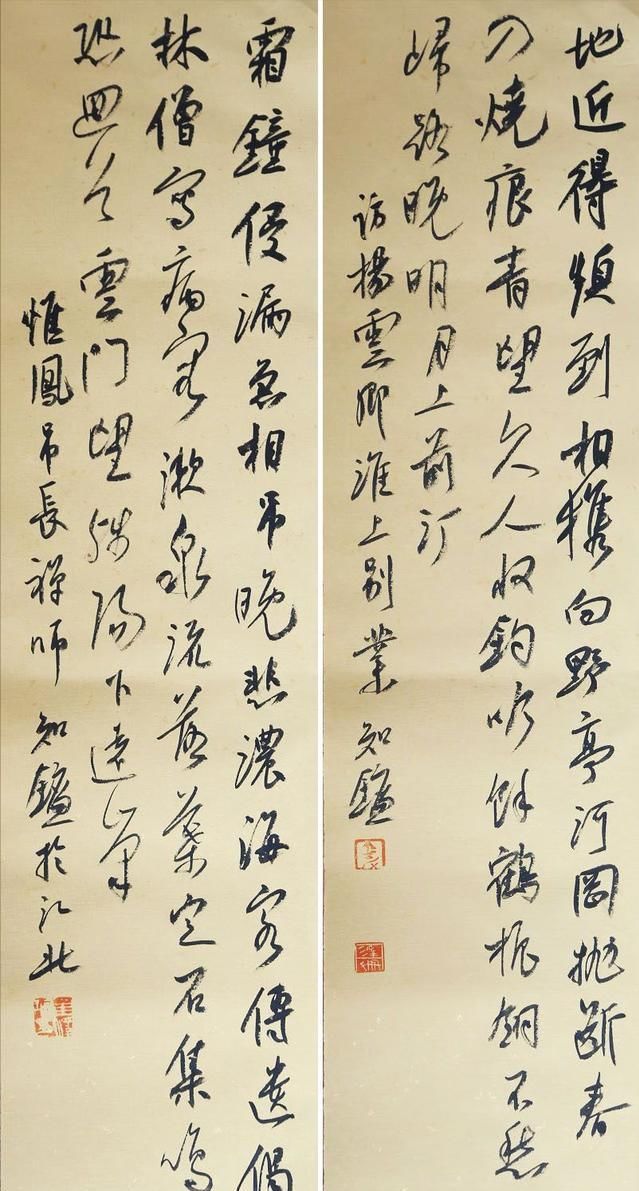 地近得頻到相攜向野亭河岡勢斷春
入燒痕青望久人收釣吟餘鶴振翎不愁
歸路晚明月上前汀
訪楊雲卿淮上別業 知
霜鐘侵漏急相吊晚悲濃海客傳遺偈
林僧寫病容漱泉流落葉定石集鳴
蛩迴首雲門望殘陽下遠峯
惟鳳吊長禪師 知 於江北